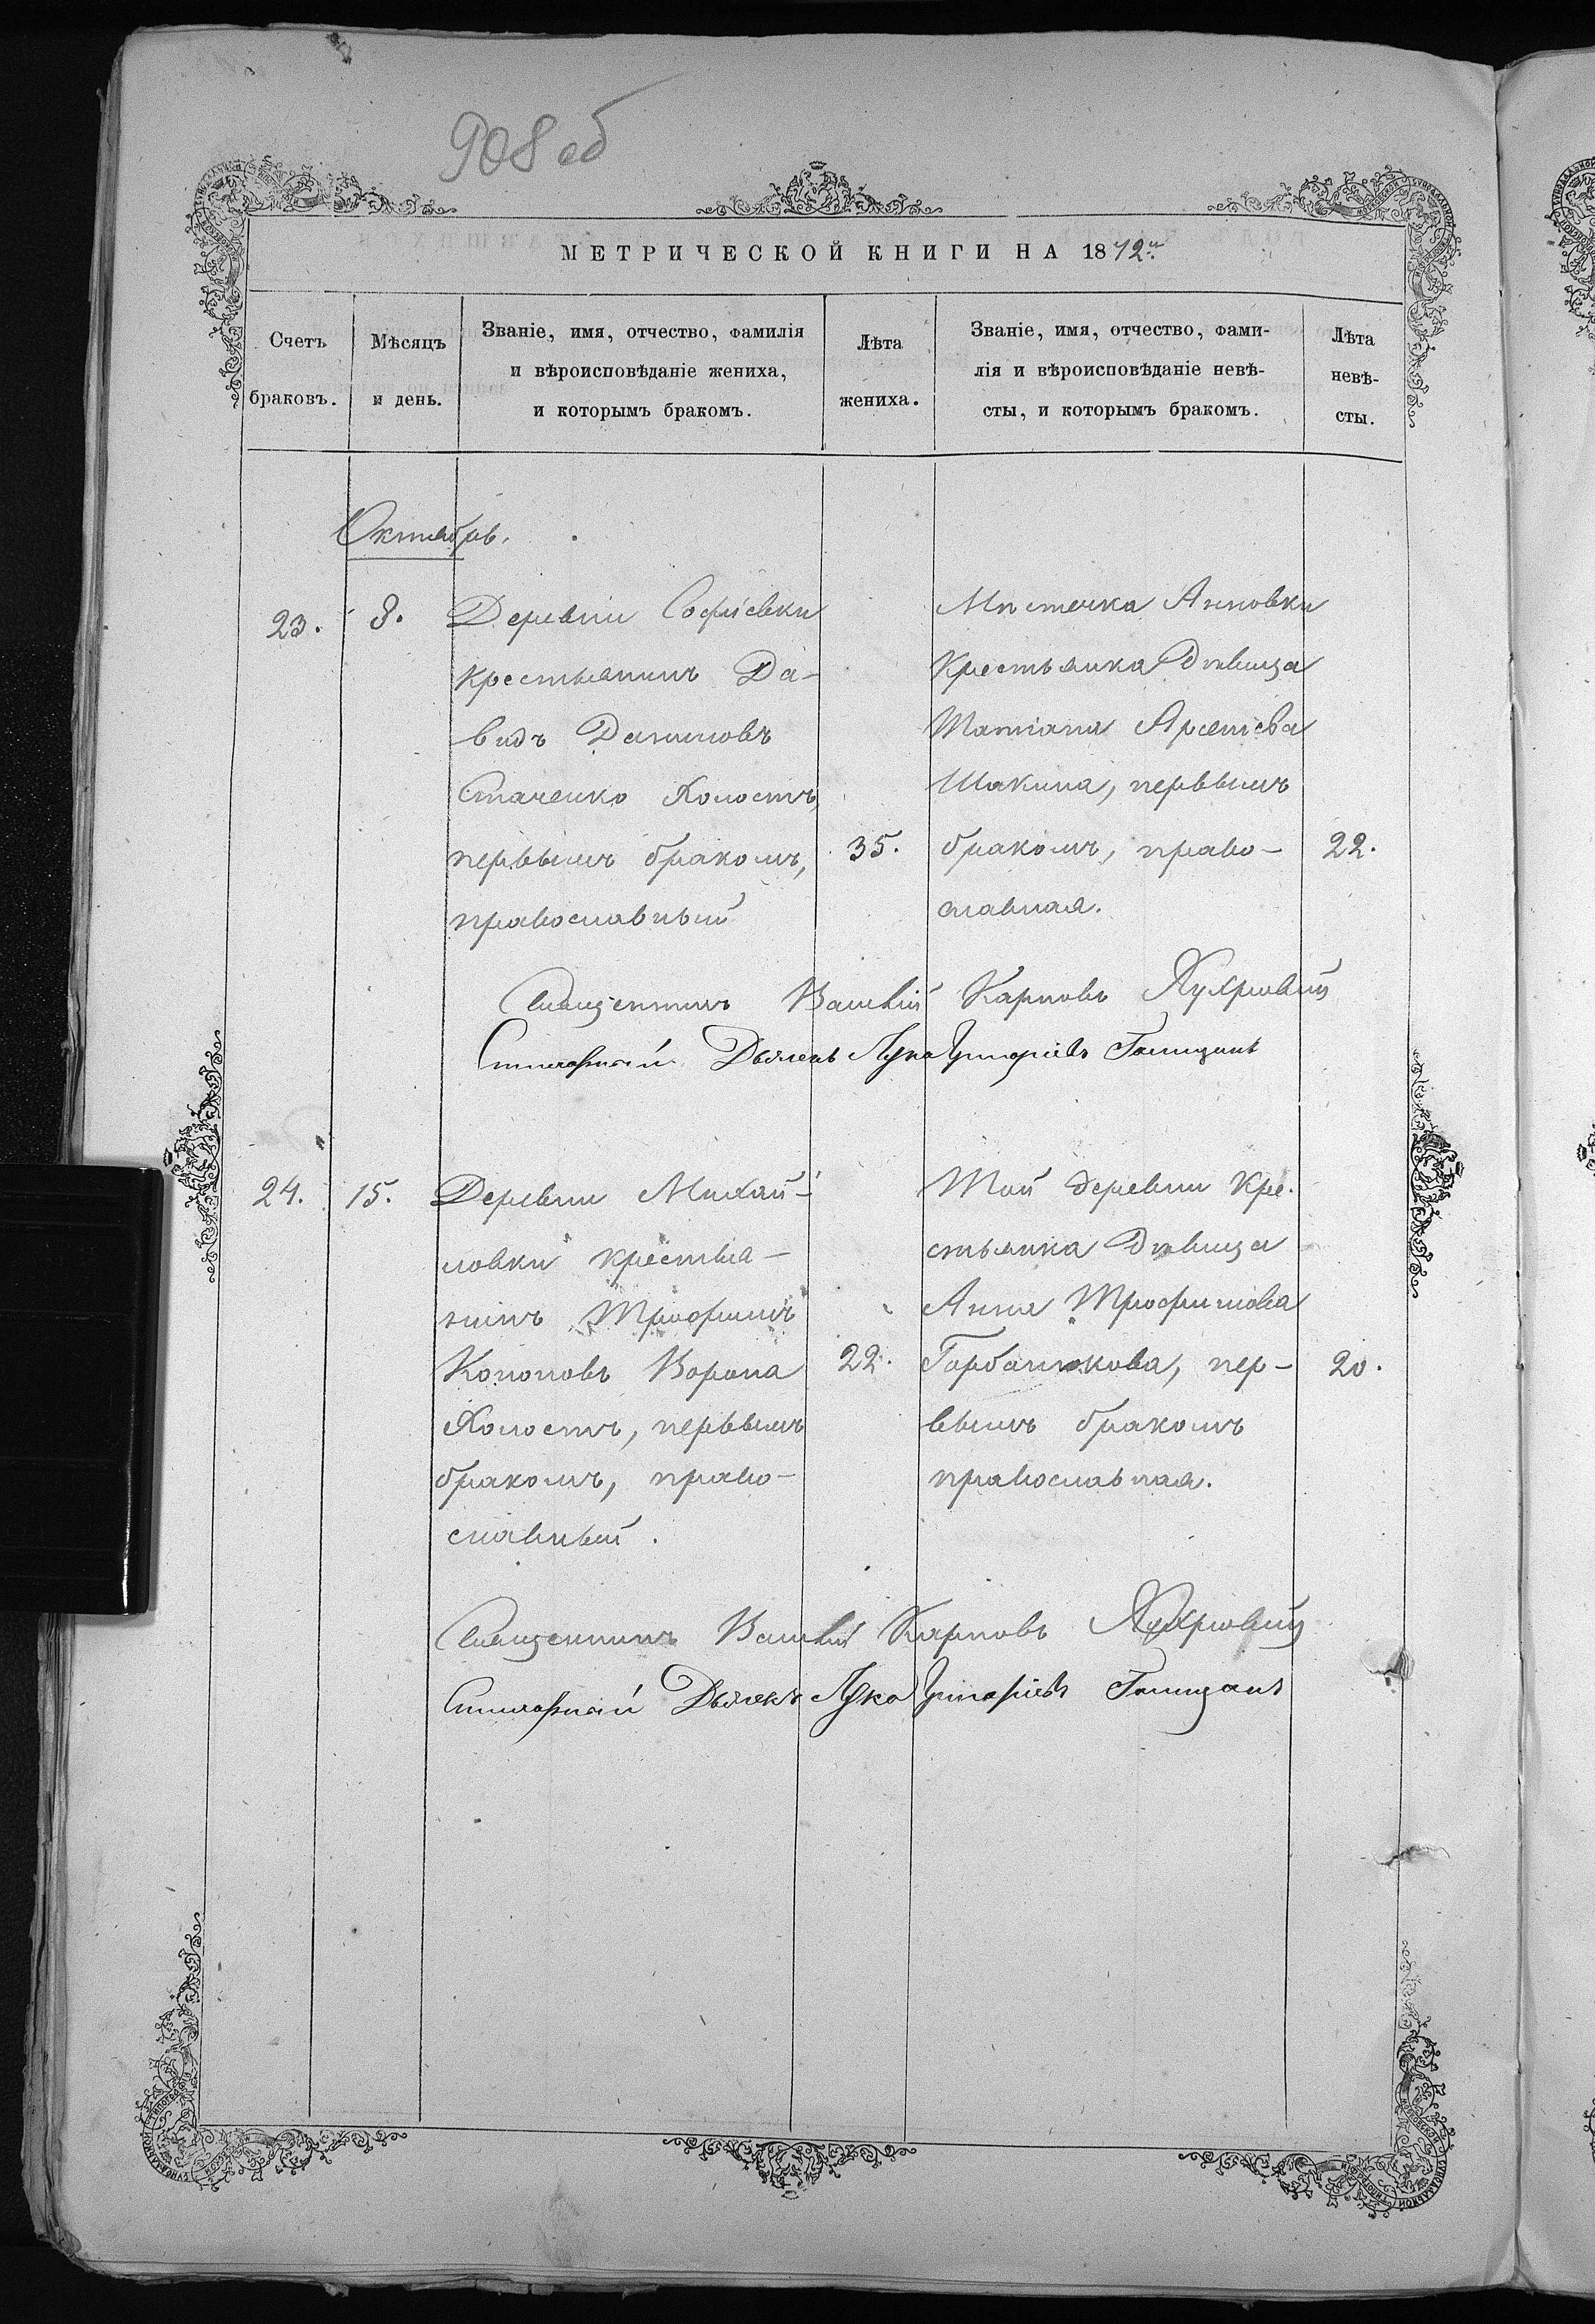 908 об
МЕТРИЧЕСКОЙ КНИГИ НА 1872й
Счетъ браковъ.
Мѣсяцъ и день.
Званіе, имя, отчество, фамилія
и вѣроисповѣданіе жениха,
и которымъ бракомъ.
Лѣта жениха.
Званіе, имя, отчество, фами-
лія и вѣроисповѣданіе невѣ-
сты, и которымъ бракомъ.
Лѣта
невѣ-
сты.
Октябрь.
23.
8.
Деревни Софіевки
крестьянинъ Да-
видъ Даниловъ
Стаченко Холостъ,
первымъ бракомъ,
православный
35.
Мѣстечка Анновки
Крестьянка Дѣвица
Татіана Арсеніева
Шакина, первымъ
бракомъ, право-
славная.
22.
Священникъ Василій Карповъ
Стихарный Дьячекъ Лука Григоріевъ
24.
15.
Деревни Михай-
ловки крестья-
нинъ Трофимъ
Кононовъ Ворона
Холостъ, первымъ
бракомъ, право-
славный.
22.
Той деревни Кре-
стьянка Дѣвица
Анна Трофимова
Горбачкова, пер-
вымъ бракомъ
православная.
20.
Священникъ Василій Карповъ
Стихарный Дьячекъ Лука Григоріевъ